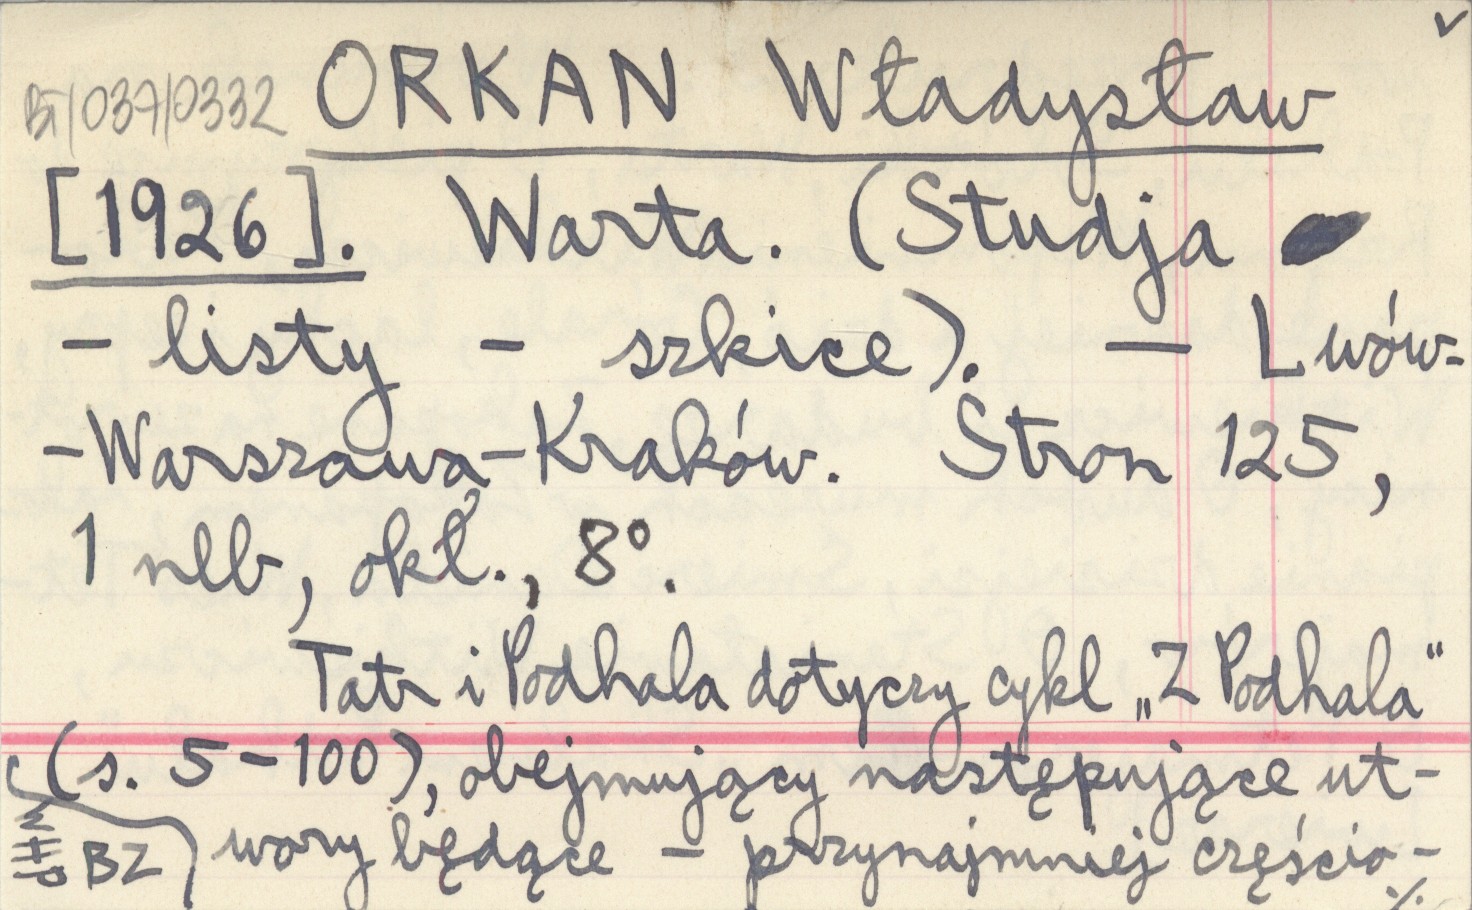 BT/037/0332 ORKAN Władysław
[1926]. Warta. (Studja
- listy - szkice). — Lwów-
-Warszawa-Kraków. Stron 125,
1 nlb, okł., 8°.
Tatr i Podhala dotyczy cykl „Z Podhala“
(s. 5-100), obejmujący następujące ut-
wory będące - przynajmniej częścio-
BZ
./.